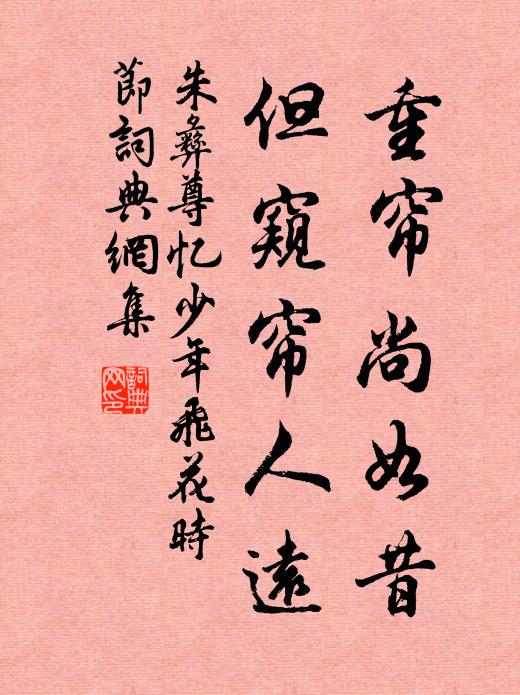 重帘尚如昔
但窥帘人遠
朱彝尊忆少年飛花時
節詞典網集
詞典
网印